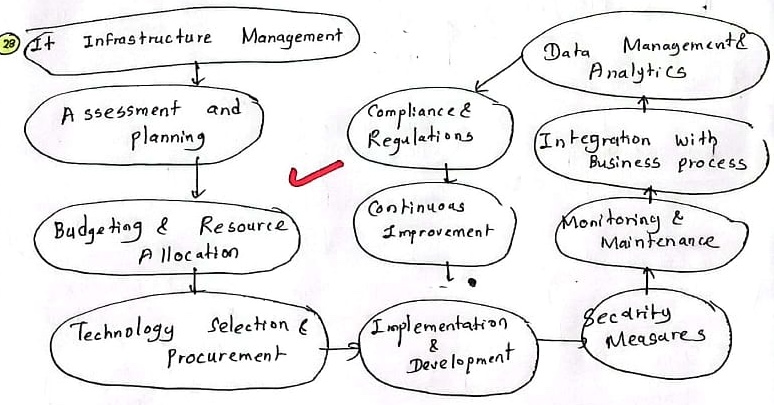 28
It Infrastructure Management
Assessment and
planning
Budgeting & Resource
Allocation
Technology Selection &
Procurement
Implementation
&
Development
Secarity
Measures
Monitoring &
Maintenance
Integration with
Business process
Data Management &
Analytics
Compliance &
Regulations
Continuous
Improvement